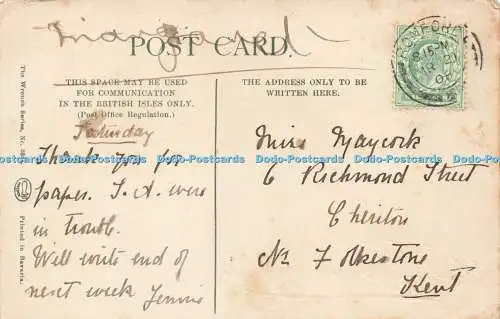 Margaret
POST CARD.
THIS SPACE MAY BE USED
FOR COMMUNICATION
IN THE BRITISH ISLES ONLY.
(Post Office Regulation.)
THE ADDRESS ONLY TO BE
WRITTEN HERE.
Saturday
Thank you for
paper. S. A. were
in trouble.
Will write end of
next week Jennie
Miss Maycock
6 Richmond Street
Cheriton
Nr Folkestone
Kent
ROMFORD
8 15 PM
The Wrench Series, No.
Printed in Bavaria.
Dodo-Postcards Dodo-Postcards Dodo-Postcards Dodo-Postcards Dodo-Postcards